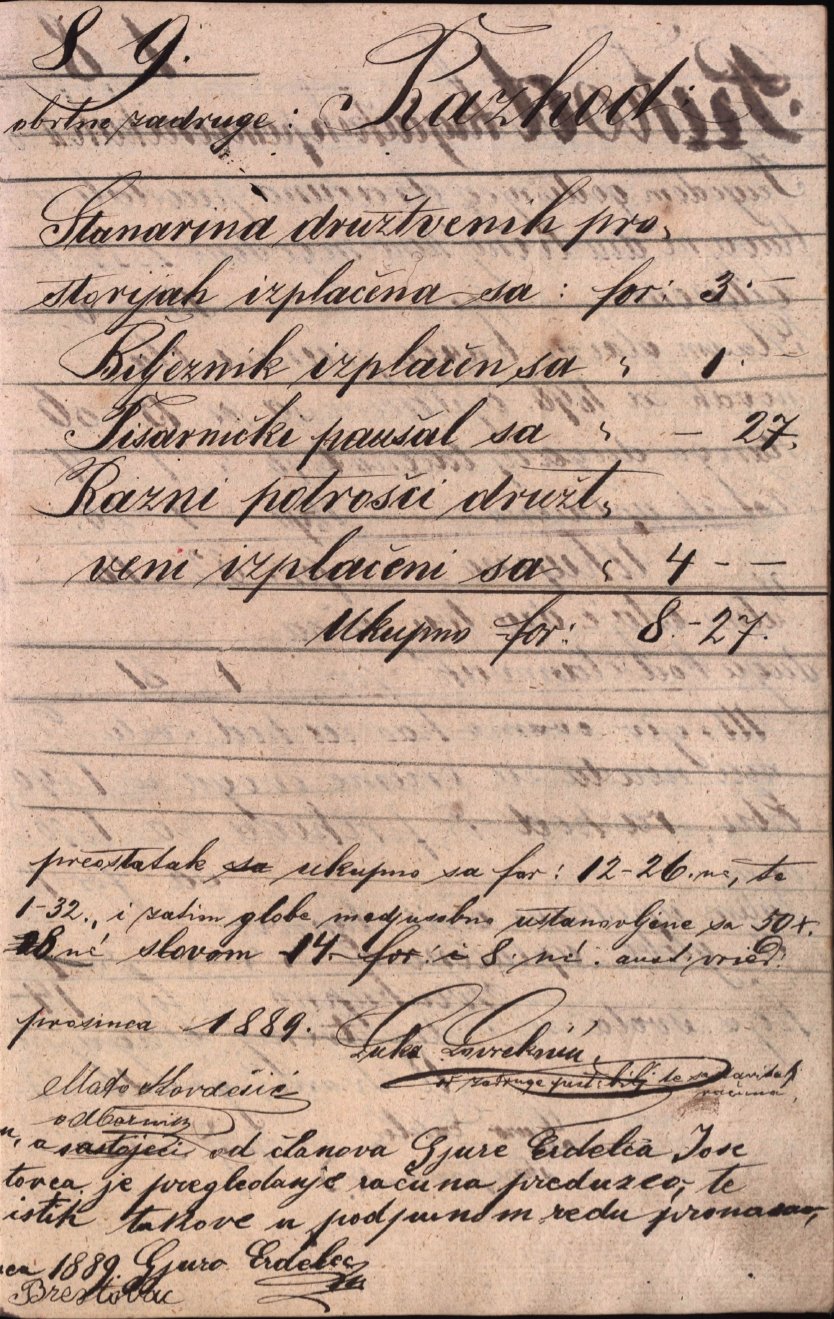 8 9.
obrtne zadruge: Razhod.
Stanarina družtvenih pro„
storijah izplaćena sa: for: 3.—
Bilježnik izplaćen sa „ 1.
Pisarnički paušal sa „ — 27.
Razni potrošci družt„
veni izplaćeni sa „ 4 - —
Ukupno for: 8.-27.
preostatak sa ukupno sa for: 12-26. nč, te
1-32., i zatim globe medjusobno ustanovljene sa 50 x.
8 nč slovom 14. for: i 8. nč. aust. vried.
prosinca 1889.
Luka
od zadruge te sastavitelj
računa,
Mato Kordešić
odbornik
a sastojeći od članova Gjure Erdelća Jose
tovca je pregledanje računa preduzeo, te
istih takove u podpunom redu pronašao,
1889 Gjuro Erdelac
Brestovac